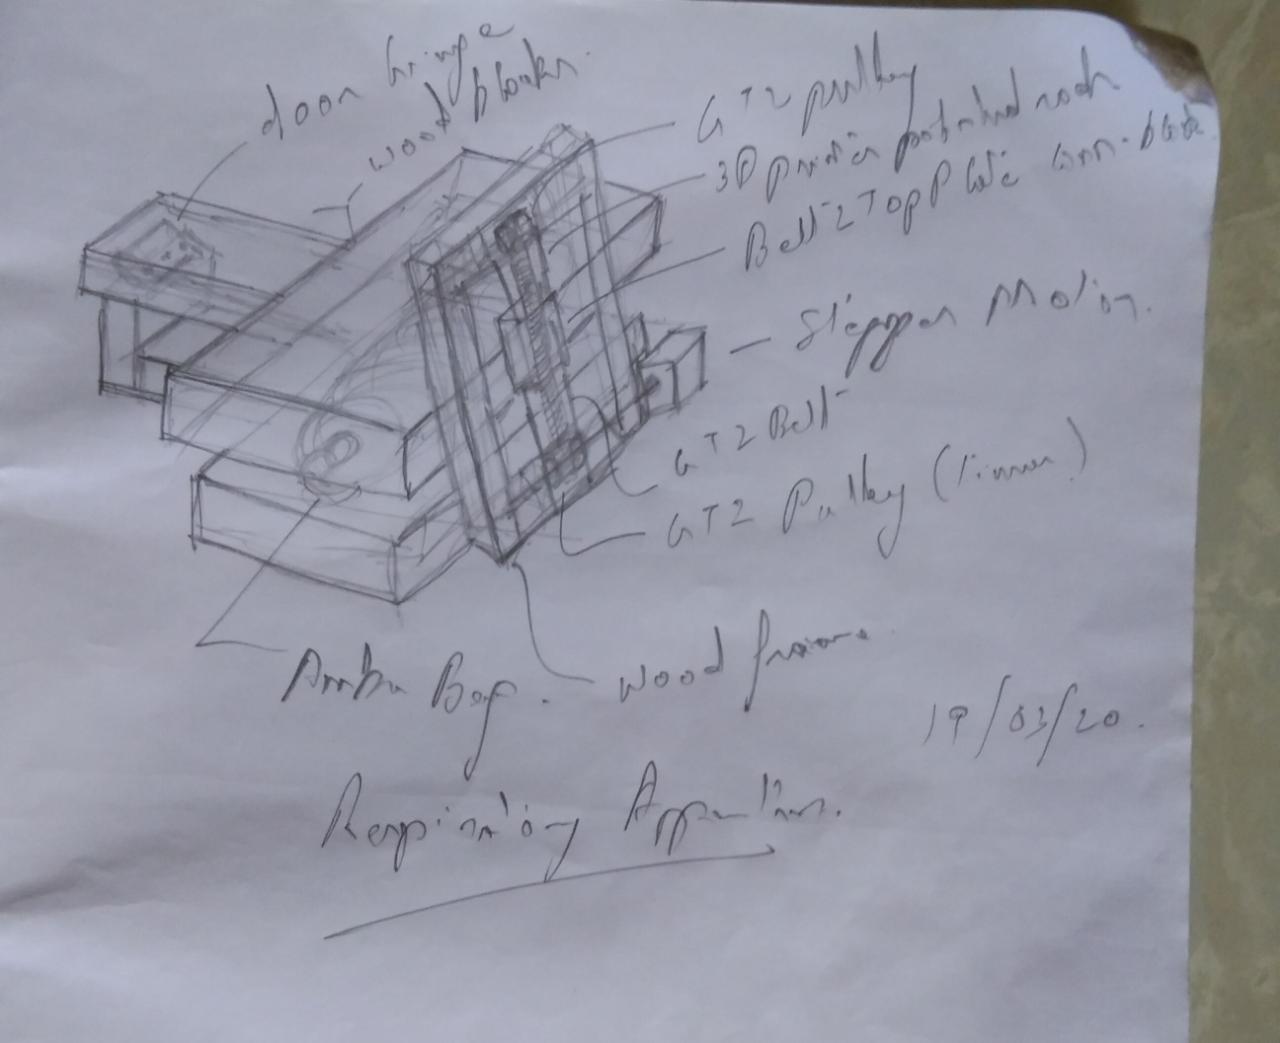 door hinge
wood blocks.
GT2 pulley
3D printer rods
Belt 2 Top Plate
Stepper Motor.
GT2 Belt
GT2 Pulley
Ambu Bag.
wood frame
19/03/20.
Respiratory Apparatus.